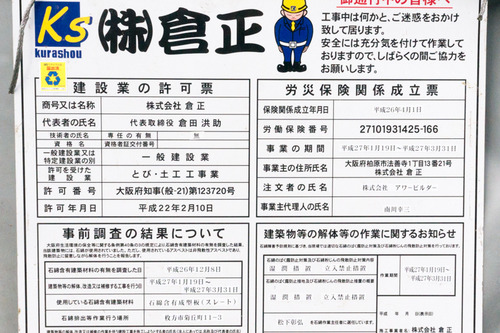 KS
kurashou
(株)倉正
御通行中の皆様へ
工事中は何かと、ご迷惑をおかけ
致して居ります。
安全には充分気を付けて作業して
おりますので、しばらくの間ご協力を
お願いします。
建設業の許可票
商号又は名称 株式会社 倉正
代表者の氏名 代表取締役 倉田 洪助
技術者の氏名 専任の有無 無
資格名 資格者証交付番号
一般建設業又は
特定建設業の別 一般建設業
許可を受けた
建設業 とび・土工工事業
許可番号 大阪府知事(般-21)第123720号
許可年月日 平成22年2月10日
労災保険関係成立票
保険関係成立年月日 平成26年4月1日
労働保険番号 27101931425-166
事業の期間 平成27年1月19日~平成27年3月31日
事業主の住所氏名 大阪府柏原市法善寺1丁目13番21号
株式会社 倉正
注文者の氏名 株式会社 アワービルダー
事業主代理人の氏名 南川幸三
事前調査の結果について
石綿含有建築材料の有無を調査した日 平成26年12月8日
建築物等の解体、改造又は補修する工事を行う日 平成27年1月19日~
平成27年3月31日
使用している石綿含有建築材料 石綿含有成型板(スレート)
石綿排出等作業を行う場所 枚方市菊丘町11-3
建築物等の解体等の作業に関するお知らせ
湿潤措置 立入禁止措置
作業期間 平成27年1月19日~
平成27年3月31日
湿潤措置 立入禁止措置
松下彰弘
株式会社 倉正